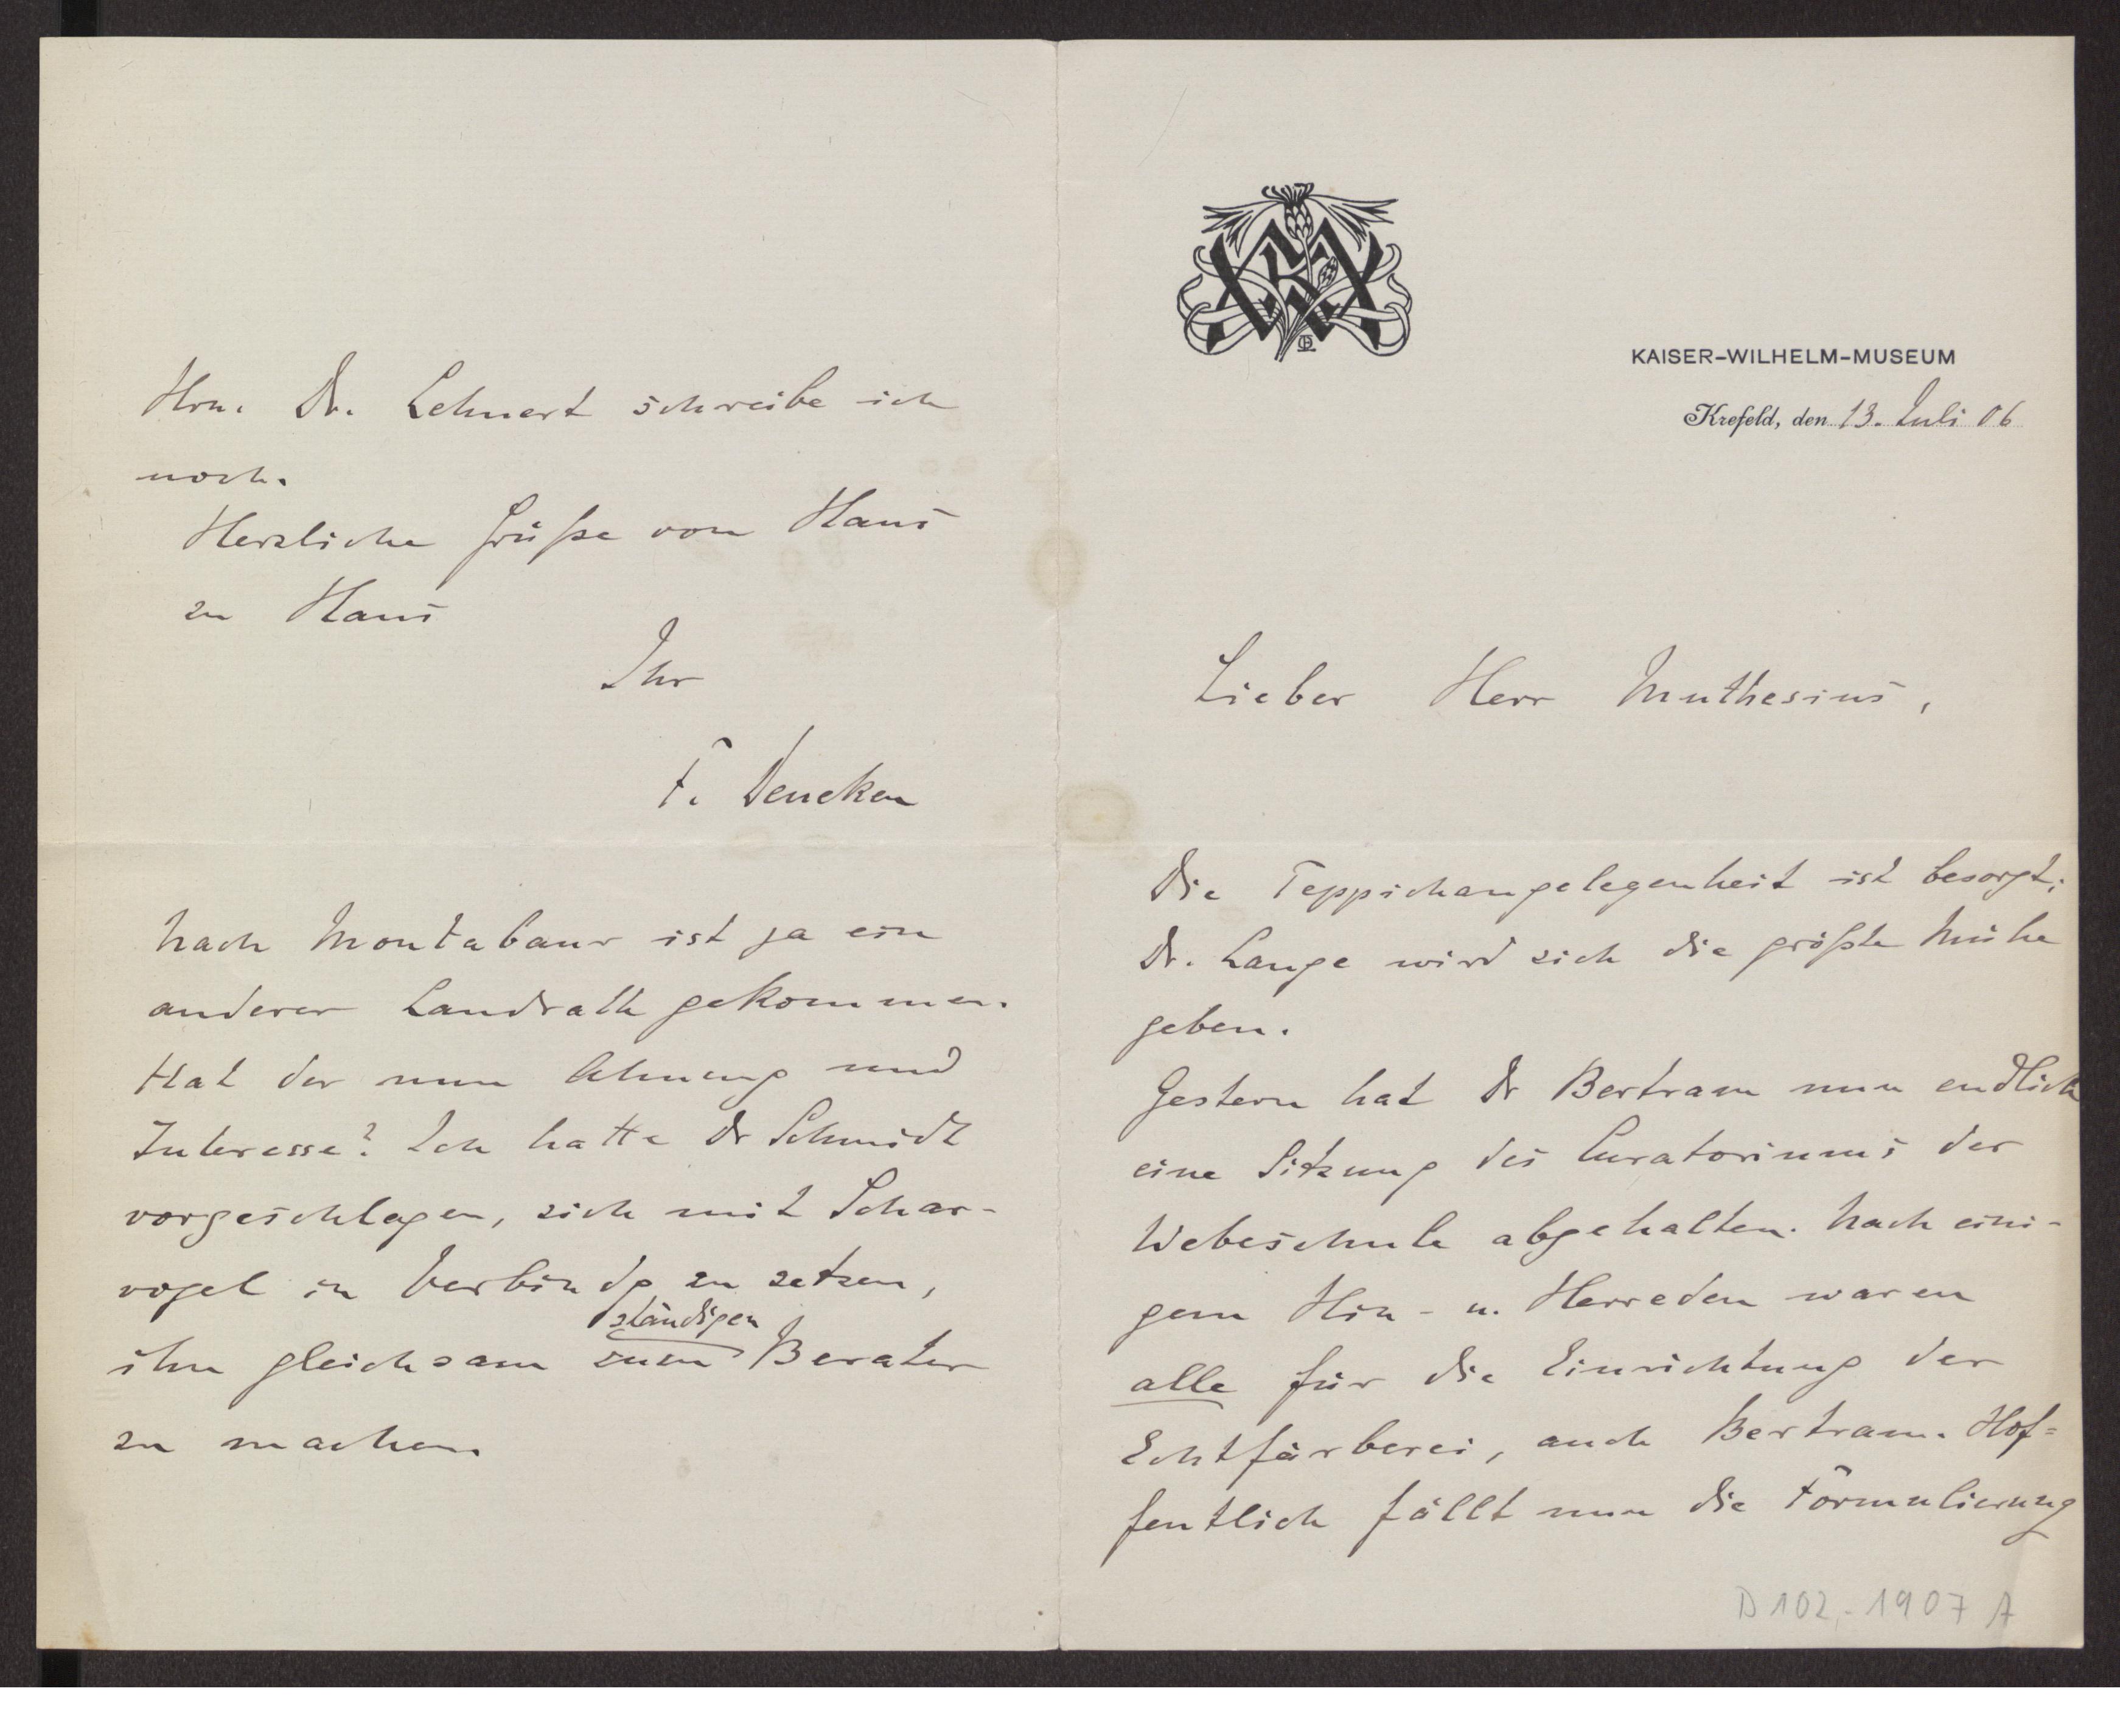 KAISER-WILHELM-MUSEUM
Krefeld, den 13. Juli 06
Lieber Herr Muthesius,
Die Teppichangelegenheit ist besorgt;
Dr. Lange wird sich die größte Mühe
geben.
Gestern hat Dr Bertram nun endlich
eine Sitzung des Curatoriums der
Webeschule abgehalten. Nach eini-
gem Hin- u. Herreden waren
alle für die Einrichtung der
Echtfärberei, auch Bertram. Hof=
fentlich fällt nun die Formulierung
D 102-1907 A
Hrn. Dr. Lehnert schreibe ich
noch.
Herzliche Grüße von Haus
zu Haus
Ihr
F. Deneken
Nach Montabaur ist ja ein
anderer Landrath gekommen.
Hat der nun Ahnung und
Interesse? Ich hatte Dr Schmidt
vorgeschlagen, sich mit Schar-
vogel in Verbindg zu setzen,
ständigen
ihn gleichsam zum Berater
zu machen.